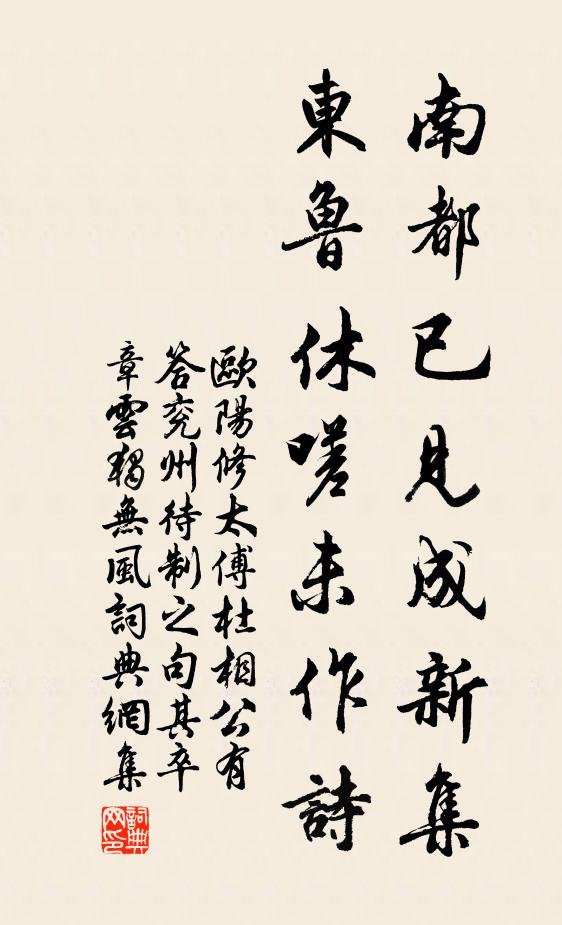 南都已見成新集
東魯休嗟未作詩
歐陽修太傅杜相公有
答兖州待制之句其卒
章雲獨無風詞典網集
詞典
网印